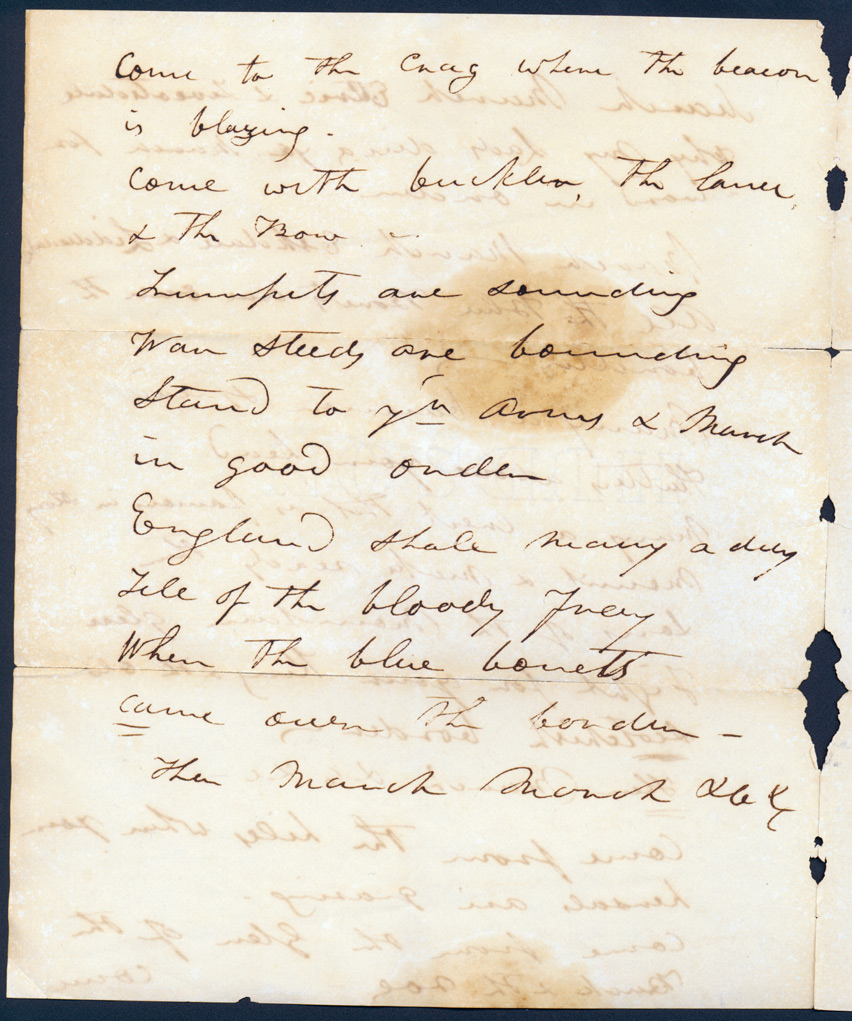 Come to the Crag where the beacon
is blazing -
Come with buckler, the lance,
& the Bow -
Trumpets are sounding
War Steeds are bounding
Stand to yr Arms & March
in good order
England shale many a day
Tele of the bloody Fray
When the blue bonetts
came over the border -
Then March March &c &c